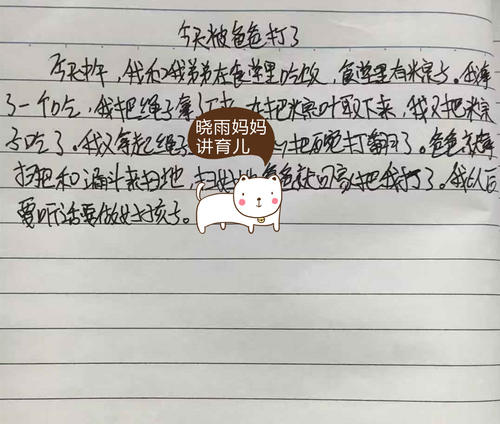 今天被爸爸打了
今天中午，我和我弟弟在食堂里吃饭，食堂里有米宗子。我拿
了一个吃，我把绳子拿下来，在把米宗叶取下来，我又把米宗
子吃了。我又拿起绳子把碗打翻了。爸爸就拿
扫把和漏斗来扫地，扫好地爸爸就回家把我打了。我以后
要听话要做好孩子。
晓雨妈妈
讲育儿